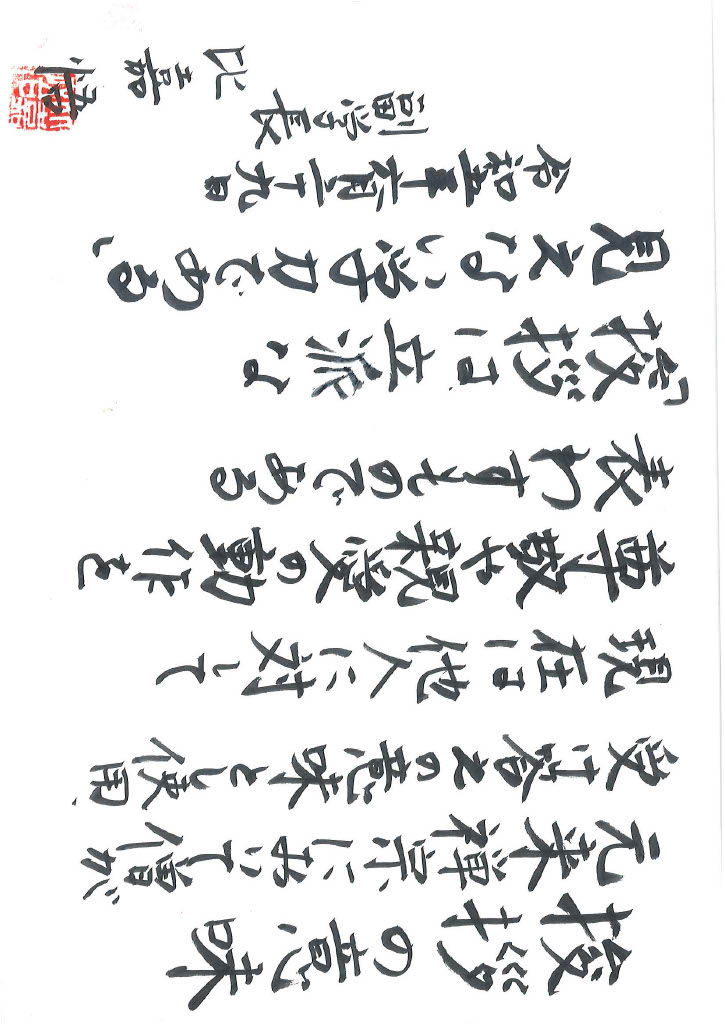 挨拶の意味
元来禅宗において僧が
受け答えの意味とし使用、
現在は他人に対して
尊敬や親愛の動作を
表わすものである
「挨拶は立派な
見えない学力である」
令和五年六月二十九日
副学長
比嘉 悟